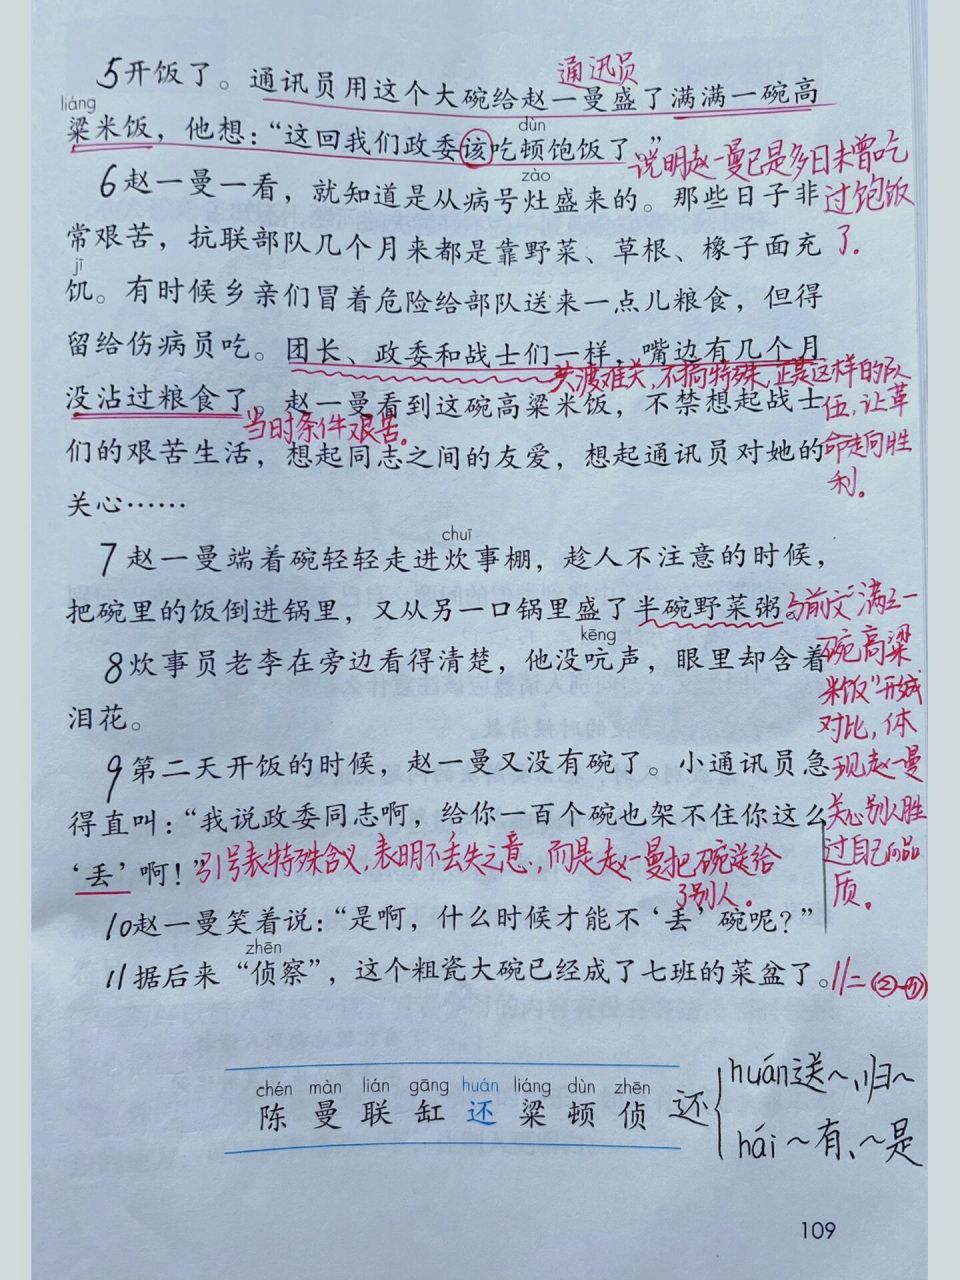 通讯员
5开饭了。通讯员用这个大碗给赵一曼盛了满满一碗高
liáng
粱米饭，他想：“这回我们政委该吃顿饱饭了。”
dùn
说明赵一曼已是多日未曾吃
过饱饭
了.
zào
6赵一曼一看，就知道是从病号灶盛来的。那些日子非
常艰苦，抗联部队几个月来都是靠野菜、草根、橡子面充
jī
饥。有时候乡亲们冒着危险给部队送来一点儿粮食，但得
留给伤病员吃。团长、政委和战士们一样，嘴边有几个月
共渡难关,不搞特殊,正是这样的队
伍,让革
命走向胜
利。
没沾过粮食了。赵一曼看到这碗高粱米饭，不禁想起战士
当时条件艰苦。
们的艰苦生活，想起同志之间的友爱，想起通讯员对她的
关心……
chuī
7赵一曼端着碗轻轻走进炊事棚，趁人不注意的时候，
把碗里的饭倒进锅里，又从另一口锅里盛了半碗野菜粥。
与前文“满一
碗高粱
米饭”形成
对比，体
现赵一曼
关心别人胜
过自己的品
质。
kēng
8炊事员老李在旁边看得清楚，他没吭声，眼里却含着
泪花。
9第二天开饭的时候，赵一曼又没有碗了。小通讯员急
得直叫：“我说政委同志啊，给你一百个碗也架不住你这么
‘丢’啊！”
引号表特殊含义,表明不丢失之意，而是赵一曼把碗送给
了别人。
10赵一曼笑着说：“是啊，什么时候才能不‘丢’碗呢？”
zhēn
11据后来“侦察”，这个粗瓷大碗已经成了七班的菜盆了。
chén màn lián gāng huán liáng dùn zhēn
陈 曼 联 缸 还 粱 顿 侦
还
huán送～,归～
hái～有、～是
109